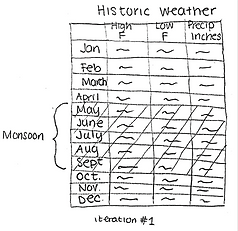 Historic Weather
High F Low F Precip Inches
Jan
Feb
March
April
May
June
Monsoon July
Aug
Sept
Oct.
Nov.
Dec.
iteration #1